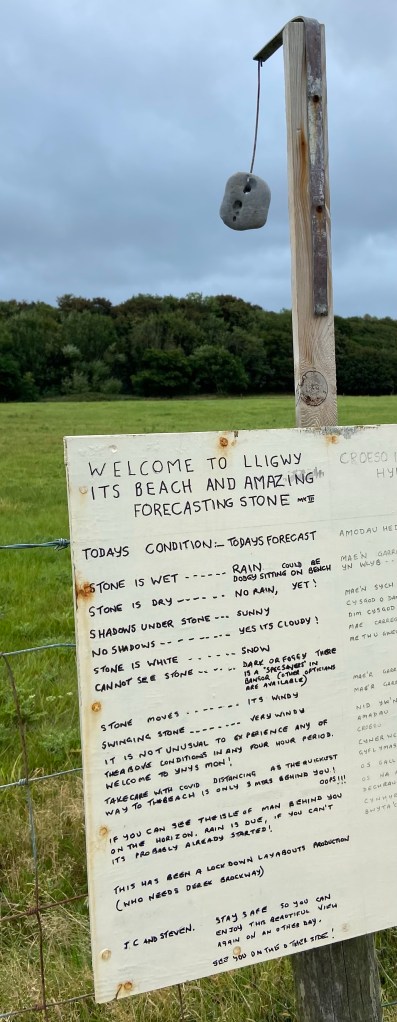 WELCOME TO LLIGWY
ITS BEACH AND AMAZING
FORECASTING STONE MK III
TODAYS CONDITION:- TODAYS FORECAST
STONE IS WET ------ RAIN COULD BE
DODGY SITTING ON BENCH
STONE IS DRY ------- NO RAIN, YET!
SHADOWS UNDER STONE --- SUNNY
NO SHADOWS -- ------- YES ITS CLOUDY!
STONE IS WHITE ------ SNOW
CANNOT SEE STONE ----- DARK OR FOGGY THERE
IS A "SPECSAVERS" IN
BANGOR (OTHER OPTICIANS
ARE AVAILABLE)
STONE MOVES ------- ITS WINDY
SWINGING STONE -------- VERY WINDY
IT IS NOT UNUSUAL TO EXPERIENCE ANY OF
THE ABOVE CONDITIONS IN ANY FOUR HOUR PERIOD.
WELCOME TO YNYS MON!
TAKE CARE WITH COVID DISTANCING AS THE QUICKUST
WAY TO THE BEACH IS ONLY 3 MTRS BEHIND YOU!
OOPS!!!
IF YOU CAN SEE THE ISLE OF MAN BEHIND YOU
ON THE HORIZON. RAIN IS DUE, IF YOU CAN'T
ITS PROBABLY ALREADY STARTED!
THIS HAS BEEN A LOCKDOWN LAYABOUTS PRODUCTION
(WHO NEEDS DEREK BROCKWAY)
J.C AND STEVEN.
STAY SAFE SO YOU CAN
ENJOY THIS BEAUTIFUL VIEW
AGAIN ON AN OTHER DAY.
SEE YOU ON THE OTHER SIDE!
CROESO
AMODAU
MAE'N
YN WLYB --
MAE'N SYCH
CYSGOD
DIM CYSGOD
MAE
MAE'R
MAE'R
NID YW'N
AMADAU